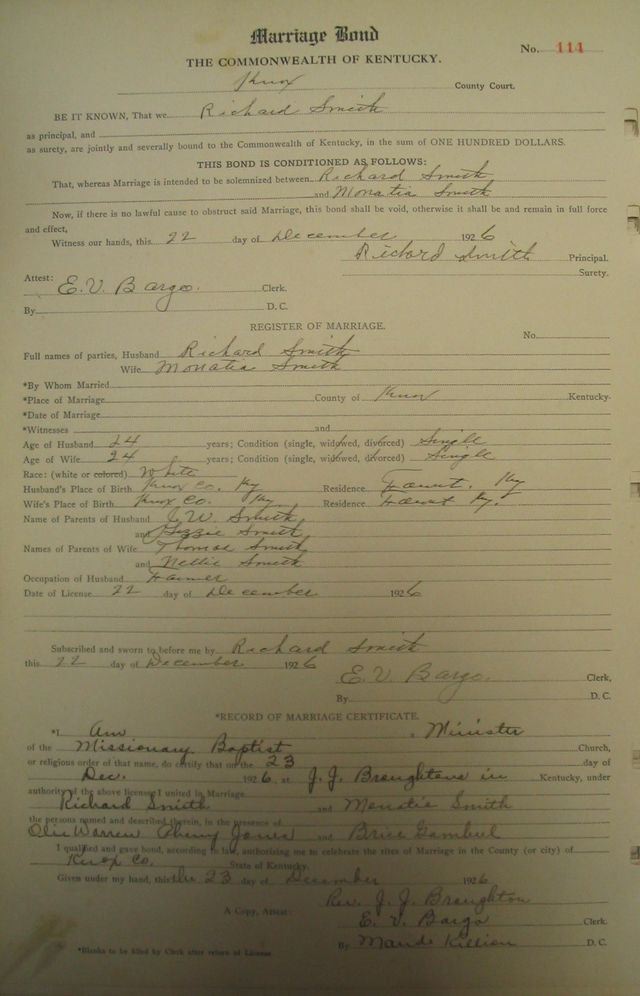 Marriage Bond
No. 114
THE COMMONWEALTH OF KENTUCKY.
Knox County Court.
BE IT KNOWN, That we Richard Smith
as principal, and
as surety, are jointly and severally bound to the Commonwealth of Kentucky, in the sum of ONE HUNDRED DOLLARS.
THIS BOND IS CONDITIONED AS FOLLOWS:
That, whereas Marriage is intended to be solemnized between Richard Smith
and Monatia Smith
Now, if there is no lawful cause to obstruct said Marriage, this bond shall be void, otherwise it shall be and remain in full force
and effect,
Witness our hands, this 22 day of December 1926
Richard Smith Principal.
Surety.
Attest:
E. V. Bargo. Clerk.
By D. C.
REGISTER OF MARRIAGE.
No.
Full names of parties, Husband Richard Smith
Wife Monatia Smith
*By Whom Married
*Place of Marriage County of Knox Kentucky
*Date of Marriage
*Witnesses and
Age of Husband 24 years; Condition (single, widowed, divorced) Single
Age of Wife 24 years; Condition (single, widowed, divorced) Single
Race: (white or colored) White
Husband's Place of Birth Knox Co. Ky Residence Ky
Wife's Place of Birth Knox Co. Ky. Residence Ky.
Name of Parents of Husband J. W. Smith
and Lizzie Smith
Names of Parents of Wife Thomas Smith
and Nettie Smith
Occupation of Husband Farmer
Date of License 22 day of December 1926
Subscribed and sworn to before me by Richard Smith
this 22 day of December 1926
E. V. Bargo. Clerk,
By D. C.
*RECORD OF MARRIAGE CERTIFICATE.
*I am a Minister
of the Missionary Baptist Church,
or religious order of that name, do certify that on the 23 day of
Dec. 1926, at J. J. Broughtons in Kentucky, under
authority of the above license I united in Marriage
Richard Smith and Monatie Smith
the persons named and described therein, in the presence of
Warren Jones and Brice Gambrel
I qualified and gave bond, according to law, authorizing me to celebrate the rites of Marriage in the County (or city) of
Knox Co. State of Kentucky.
Given under my hand, this the 23 day of December 1926
Rev. J. J. Broughton
A Copy, Attest: E. V. Bargo Clerk.
By Maude Killion D. C.
*Blanks to be filled by Clerk after return of License